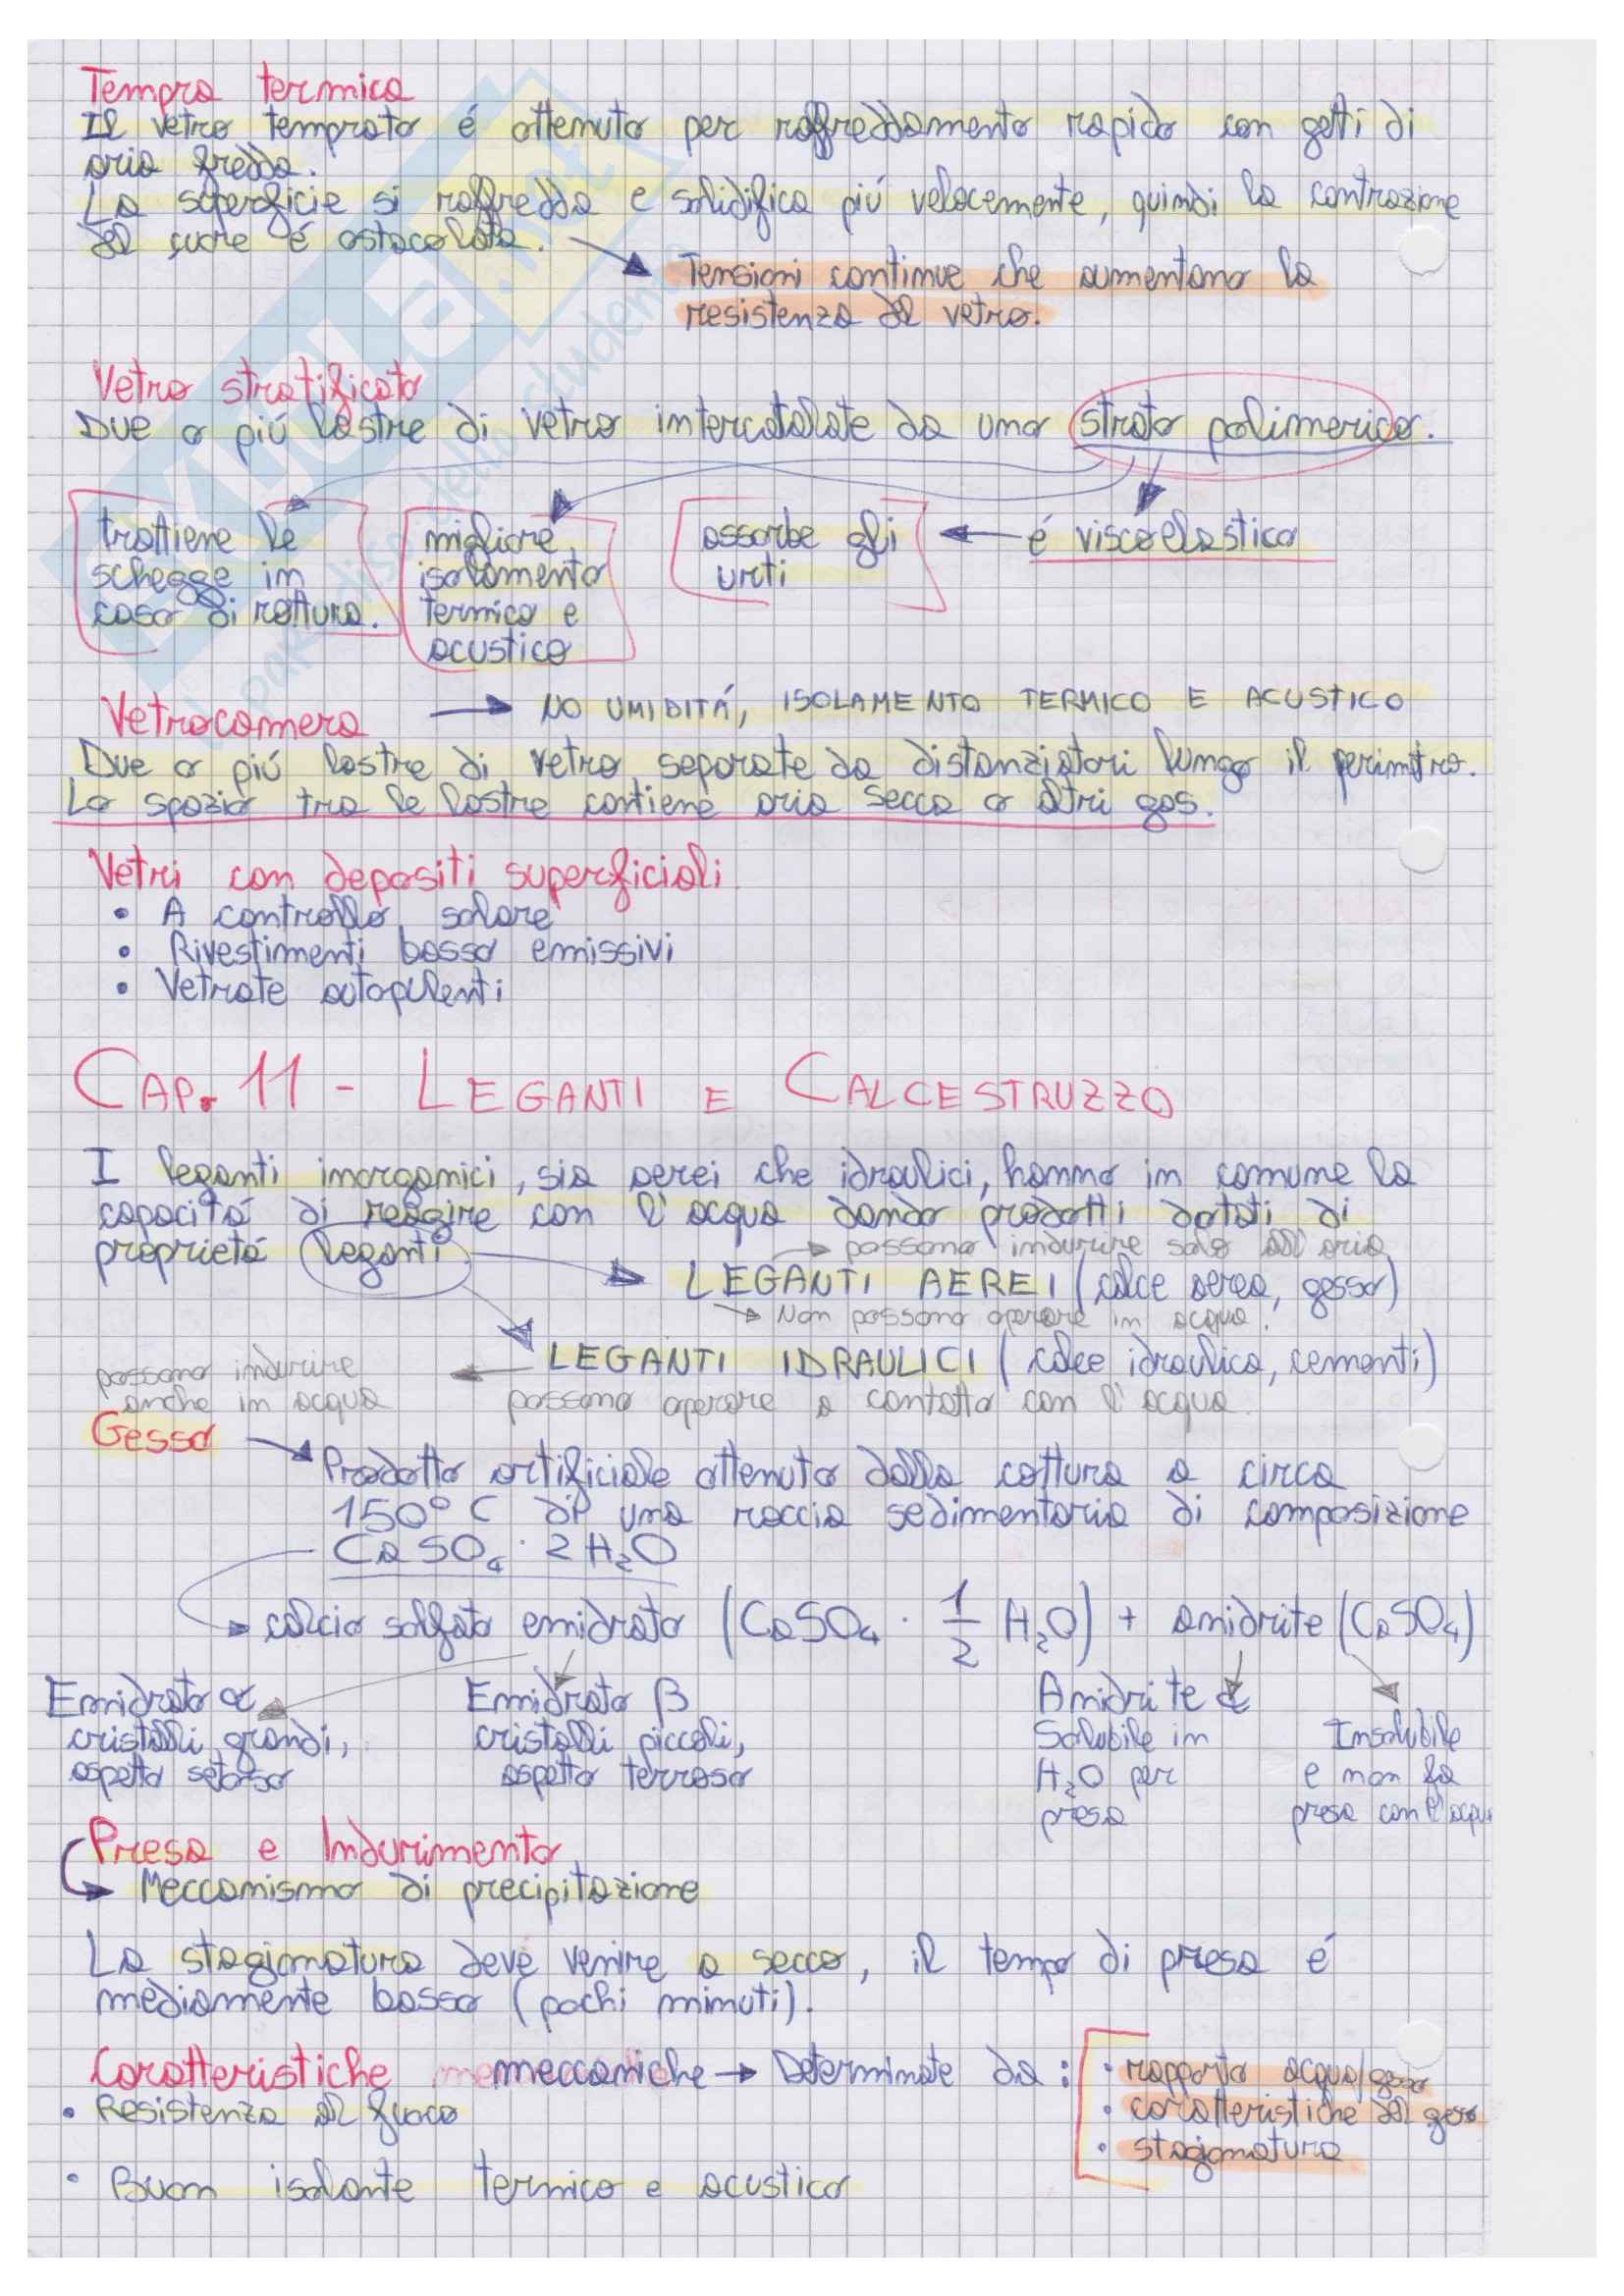 Tempra termica
Il vetro temprato é ottenuto per raffreddamento rapido con getti di
aria fredda.
La superficie si raffredda e solidifica piú velocemente, quindi la contrazione
del cuore é ostacolata.
Tensioni continue che aumentano la
resistenza del vetro.
Vetro stratificato
Due o piú lastre di vetro intercatalate da uno strato polimerico.
trattiene le
schegge in
caso di rottura.
migliore
isolamento
termico e
acustico
assorbe gli
urti
é viscoelastico
Vetrocamera
NO UMIDITÁ, ISOLAMENTO TERMICO E ACUSTICO
Due o piú lastre di vetro separate da distanziatori lungo il perimetro.
Lo spazio tra le lastre contiene aria secca o altri gas.
Vetri con depositi superficiali
• A controllo solare
• Rivestimenti basso emissivi
• Vetrate autopulenti
CAP. 11 - LEGANTI E CALCESTRUZZO
I leganti inorganici, sia aerei che idraulici, hanno in comune la
capacitá di reagire con l'acqua dando prodotti dotati di
proprietá leganti.
possono indurire solo all'aria
LEGANTI AEREI (calce aerea, gesso)
Non possono operare in acqua.
LEGANTI IDRAULICI (calce idraulica, cementi)
possono indurire
anche in acqua
possono operare a contatto con l'acqua.
Gesso
Prodotto artificiale ottenuto dalla cottura a circa
150° C di una roccia sedimentaria di composizione
CaSO₄ · 2H₂O
calcio solfato emidrato (CaSO₄ · 1/2 H₂O) + anidrite (CaSO₄)
Emidrato α
cristalli grandi,
aspetto setoso
Emidrato β
cristalli piccoli,
aspetto terroso
Anidrite α
Solubile in
H₂O per
presa
Insolubile
e non fa
presa con l'acqua
Presa e Indurimento
Meccanismo di precipitazione
La stagionatura deve venire a secco, il tempo di presa é
mediamente basso (pochi minuti).
Caratteristiche meccaniche → Determinate da:
• rapporto acqua/gesso
• caratteristiche del gesso
• stagionatura
• Resistenza al fuoco
• Buon isolante termico e acustico